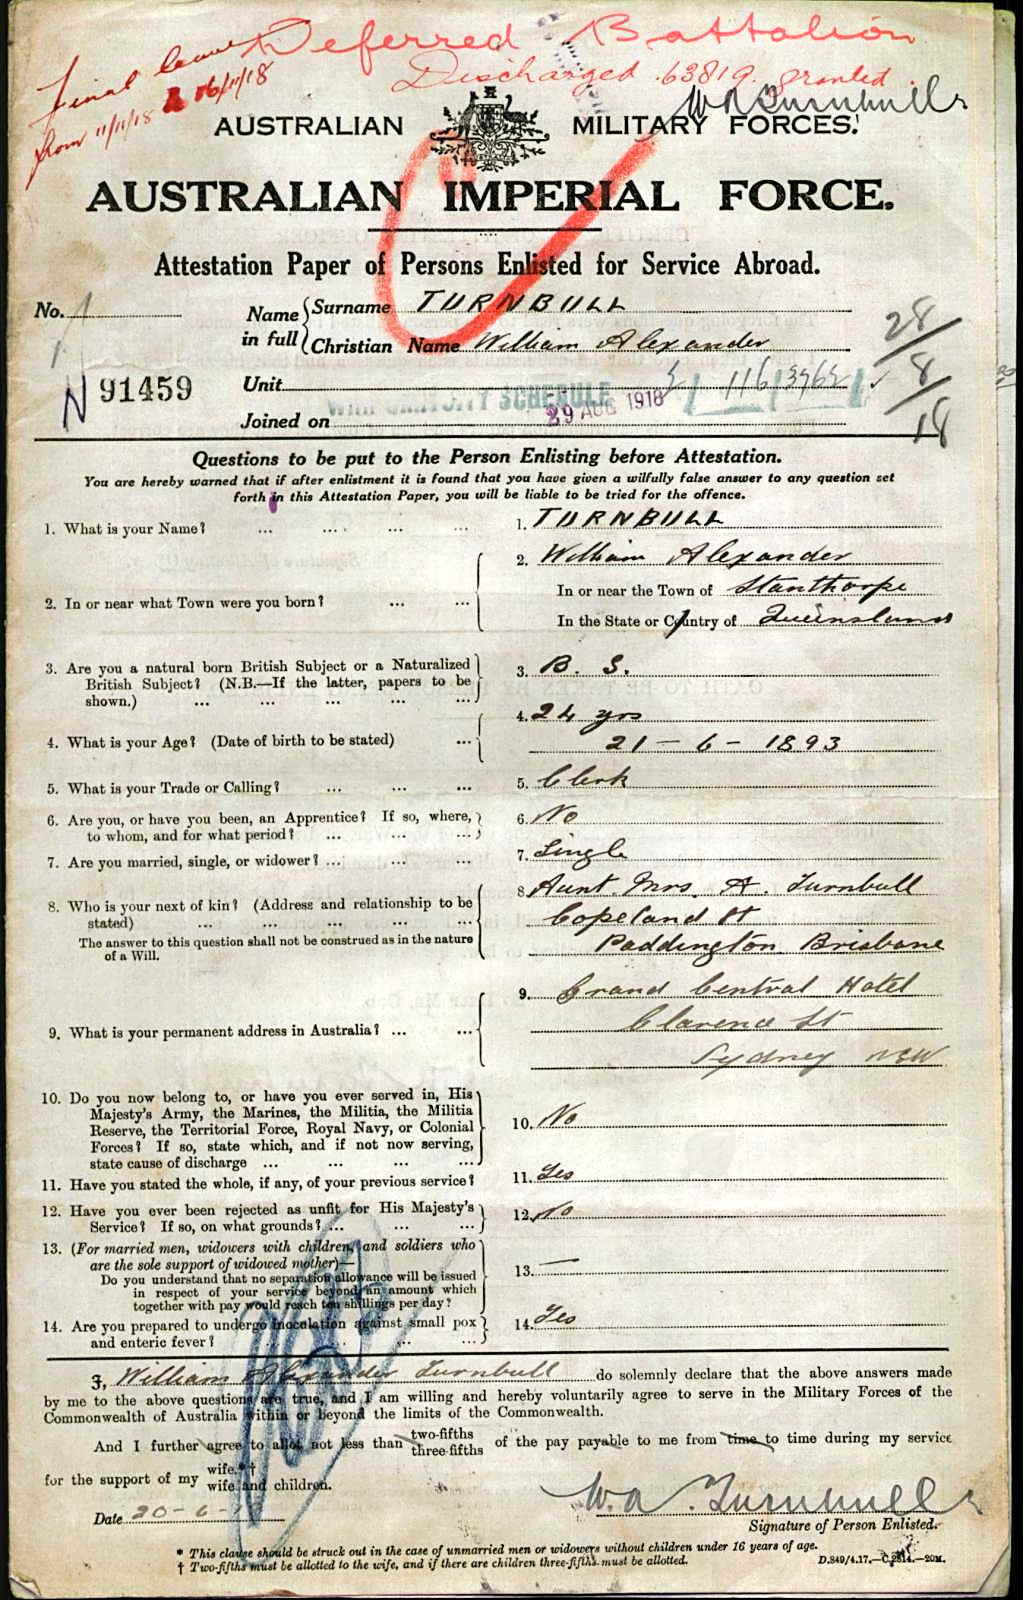 Deferred Battalion
Final leave
from 11/11/18 to 16/11/18
Discharged 63819. granted.
W A Turnbull
AUSTRALIAN MILITARY FORCES.
AUSTRALIAN IMPERIAL FORCE.
Attestation Paper of Persons Enlisted for Service Abroad.
No.
Name in full { Surname TURNBULL
Christian Name William Alexander
28/8/18
N 91459
Unit
WAR GRATUITY SCHEDULE
29 AUG 1918
Joined on
Questions to be put to the Person Enlisting before Attestation.
You are hereby warned that if after enlistment it is found that you have given a wilfully false answer to any question set
forth in this Attestation Paper, you will be liable to be tried for the offence.
1. What is your Name? ... ... ... ... 1. TURNBULL
2. William Alexander
2. In or near what Town were you born? ... ... In or near the Town of Stanthorpe
In the State or Country of Queensland
3. Are you a natural born British Subject or a Naturalized
British Subject? (N.B.—If the latter, papers to be
shown.) ... ... ... ... ... 3. B. S.
4. What is your Age? (Date of birth to be stated) ... 4. 24 yrs
21 - 6 - 1893
5. What is your Trade or Calling? ... ... ... 5. Clerk
6. Are you, or have you been, an Apprentice? If so, where,
to whom, and for what period? ... ... ... 6. No
7. Are you married, single, or widower? ... ... ... 7. Single
8. Who is your next of kin? (Address and relationship to be
stated) ... ... ... ... ...
The answer to this question shall not be construed as in the nature
of a Will.
8. Aunt. Mrs. A. Turnbull
Copeland St
Paddington Brisbane
9. What is your permanent address in Australia? ... ... 9. Grand Central Hotel
Clarence St
Sydney NSW
10. Do you now belong to, or have you ever served in, His
Majesty's Army, the Marines, the Militia, the Militia
Reserve, the Territorial Force, Royal Navy, or Colonial
Forces? If so, state which, and if not now serving,
state cause of discharge ... ... ... ... 10. No
11. Have you stated the whole, if any, of your previous service? 11. Yes
12. Have you ever been rejected as unfit for His Majesty's
Service? If so, on what grounds? ... ... ... 12. No
13. (For married men, widowers with children, and soldiers who
are the sole support of widowed mother)—
Do you understand that no separation allowance will be issued
in respect of your service beyond an amount which
together with pay would reach ten shillings per day? 13. —
14. Are you prepared to undergo inoculation against small pox
and enteric fever? ... ... ... ... 14. Yes
I, William Alexander Turnbull do solemnly declare that the above answers made
by me to the above questions are true, and I am willing and hereby voluntarily agree to serve in the Military Forces of the
Commonwealth of Australia within or beyond the limits of the Commonwealth.
And I further agree to allot not less than two-fifths three-fifths of the pay payable to me from time to time during my service
for the support of my wife.*† wife and children.
W. A. Turnbull
Date 20-6-18
Signature of Person Enlisted.
* This clause should be struck out in the case of unmarried men or widowers without children under 16 years of age.
† Two-fifths must be allotted to the wife, and if there are children three-fifths must be allotted.
D.849/4.17.—C.2814.—20M.